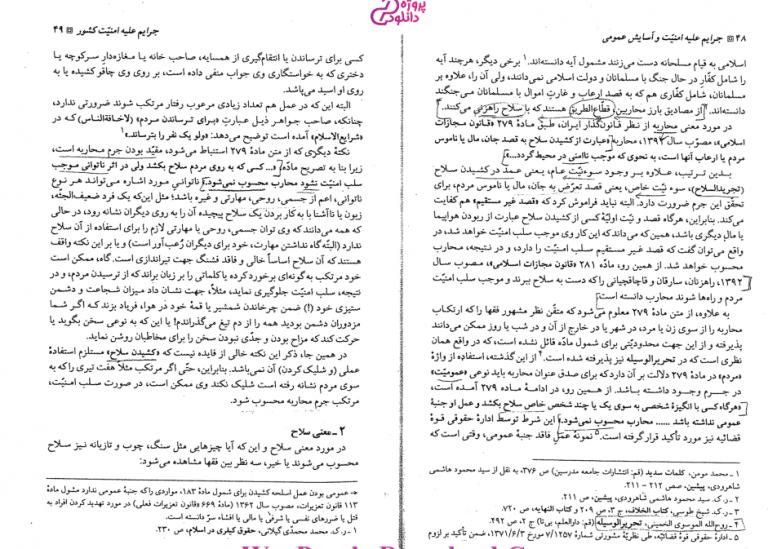 ۴۸ جرایم علیه امنیّت و آسایش عمومی
اسلامی به قیام مسلحانه دست می‌زنند مشمول آیه دانسته‌اند.۱ برخی دیگر، هرچند آیه
را شامل کفّار در حال جنگ با مسلمانان و دولت اسلامی نمی‌دانند، ولی آن را، علاوه بر
مسلمانان، شامل کفّاری هم که به قصد ارعاب و غارتِ اموال با مسلمانان می‌جنگند
دانسته‌اند.۲ از مصادیق بارز محاربین، قطّاع‌الطریق هستند که با سلاح راهزنی می‌کنند.۳
در مورد معنی محاربه از نظر قانون‌گذار ایران، طبق مادّهٔ ۲۷۹ «قانون مجازات
اسلامی»، مصوّب سال ۱۳۹۲، محاربه «عبارت از کشیدن سلاح به قصد جان، مال یا ناموس
مردم یا ارعاب آنها است، به نحوی که موجب ناامنی در محیط گردد...»
بدین ترتیب، علاوه بر وجود سوءنیّت عام، یعنی عمد در کشیدن سلاح
(تجریدالسلاح)، سوء نیّت خاص، یعنی قصد تعرّض به جان، مال یا ناموس مردم، برای
تحقّق این جرم ضرورت دارد. البته نباید فراموش کرد که «قصد غیر مستقیم» هم کفایت
می‌کند. بنابراین، هرگاه قصد و نیّت اولیّهٔ کسی از کشیدن سلاح عبارت از ربودن هواپیما
یا مال دیگری باشد، همین که می‌داند که این کار وی موجب سلب امنیّت خواهد شد، در
واقع می‌توان گفت که قصد غیر مستقیم سلب امنیّت را دارد، و در نتیجه، محارب
محسوب خواهد شد. از همین رو، مادّه ۲۸۱ «قانون مجازات اسلامی»، مصوب سال
۱۳۹۲، راهزنان، سارقان و قاچاقچیانی را که دست به سلاح ببرند و موجب سلب امنیّت
مردم و راه‌ها شوند محارب دانسته است.
به علاوه، از مادّهٔ ۲۷۹ معلوم می‌شود که مقنّن نظر مشهور فقها را که ارتکاب
محاربه را از سوی زن یا مرد، در شهر یا در خارج از آن و در شب یا روز ممکن می‌دانند
پذیرفته و از این جهت محدودیّتی برای شمول مادّه قائل نشده است، که در واقع همان
نظری است که در تحریرالوسیله نیز پذیرفته شده است.۴ از این گذشته، استفاده از واژهٔ
«مردم» در مادّهٔ ۲۷۹ دلالت بر آن دارد که برای صدق عنوان محاربه باید نوعی «عمومیّت»
در جرم وجود داشته باشد. از همین رو، در ادامهٔ مادّهٔ ۲۷۹ آمده است،
«هرگاه کسی با انگیزهٔ شخصی به سوی یک یا چند شخص خاص سلاح بکشد و عمل او جنبهٔ
عمومی نداشته باشد ...... محارب محسوب نمی‌شود.» این شرط توسط ادارهٔ حقوقی قوهٔ
قضائیه نیز مورد تأکید قرار گرفته است.۵ نمونهٔ عملِ فاقد جنبهٔ عمومی، وقتی است که
۱ - محمد مومن، کلمات سدید (قم: انتشارات جامعه مدرسین) ص ۳۷۶، به نقل از سید محمود هاشمی
شاهرودی، پیشین، صص ۲۱۲ - ۲۱۱.
۲ - ر.ک. سید محمود هاشمی شاهرودی، پیشین، ص ۲۱۱.
۳ - ر.ک. شیخ طوسی، کتاب الخلاف، ج ۳، ص ۲۰۹ و کتاب النهایه، ص ۷۲۰.
۴ - روح‌الله الموسوی الخمینی، تحریرالوسیله (قم: دارالعلم، بی‌تا) ج ۲، ص ۲۹۲.
۵ - ادارهٔ حقوقی قوهٔ قضائیه، طی نظریهٔ مشورتی شمارهٔ ۷/۱۲۵۷ مورخ ۱۳۷۱/۶/۳، ضمن تأکید بر لزوم
جرایم علیه امنیّت کشور ۴۹
کسی برای ترساندن یا انتقام‌گیری از همسایه، صاحب خانه یا مغازه‌دار سرکوچه یا
دختری که به خواستگاری وی جواب منفی داده است، بر روی وی چاقو کشیده یا به
روی او اسید می‌باشد.
البته این که در عمل هم تعداد زیادی مرعوب رفتار مرتکب شوند ضرورتی ندارد،
چنانکه، صاحب جواهر ذیل عبارتِ «برای ترساندن مردم» (لاخافةالناس) که در
«شرایع‌الاسلام» آمده است توضیح می‌دهد: «ولو یک نفر را بترساند.»۱
نکتهٔ دیگری که از متن مادّهٔ ۲۷۹ استنباط می‌شود، مقیّد بودن جرم محاربه است،
زیرا بنا به تصریح مادّه، «...کسی که به روی مردم سلاح بکشد ولی در اثر ناتوانی موجب
سلب امنیّت نشود محارب محسوب نمی‌شود.» ناتوانی مورد اشاره می‌تواند هر نوع
ناتوانی، اعم از جسمی، روحی، مهارتی و غیره باشد؛ مثل این‌که یک فرد ضعیف‌الجثّه،
زبون یا ناآشنا با به کار بردن یک سلاح پیچیده آن را به روی دیگران نشانه رود، در حالی
که همه می‌دانند که وی توان جسمی، روحی یا مهارتی لازم را برای استفاده از آن سلاح
ندارد (البته گاه نداشتن مهارت، خود برای دیگران رُعب‌آور است) و یا بر این نکته واقف
هستند که آن سلاح اساساً خالی و فاقد فشنگ جهت تیراندازی است. گاه، ممکن است
خود مرتکب به‌گونه‌ای برخورد کرده یا کلماتی را بر زبان براند که از ترسیدن مردم، و در
نتیجه، سلب امنیّت جلوگیری نماید، مثلاً، جهت نشان داد میزان شجاعت و دشمن
ستیزی خود (!) ضمن چرخاندن شمشیر یا قمهٔ خود در هوا، فریاد بزند که اگر شما
مزدوران دشمن بودید همه را از دم تیغ می‌گذراندم! یا این که به نوعی سخن بگوید یا
حرکت کند که مزاح بودن و جدّی نبودن سخن را برای مخاطبان روشن نماید.
در همین جا، ذکر این نکته خالی از فایده نیست که «کشیدن سلاح» مستلزم استفادهٔ
عملی (و شلیک کردن) آن نمی‌باشد. بنابراین، حتّی اگر مرتکب مثلاً هفت تیری را که به
سوی مردم نشانه رفته است شلیک نکند وی ممکن است، در صورت سلب امنیّت،
مرتکب جرم محاربه محسوب شود.
۲ - معنی سلاح
در مورد معنی سلاح و این که آیا چیزهایی مثل سنگ، چوب و تازیانه نیز سلاح
محسوب می‌شوند یا خیر، سه نظر بین فقها مشاهده می‌شود:
← عمومی بودن عمل اسلحه کشیدن برای شمول مادهٔ ۱۸۳، مواردی را که جنبهٔ عمومی ندارد مشمول مادّهٔ
۱۱۳ قانون تعزیرات، مصوب سال ۱۳۶۲ (مادّهٔ ۶۶۹ «قانون تعزیرات» فعلی) در مورد تهدید کردن افراد به
قتل یا ضررهای نفسی یا شرفی یا مالی یا افشاء سرّ دانسته است.
۱ - ر.ک. محمد محمدی گیلانی، حقوق کیفری در اسلام، ص ۲۳۰.
پروژه
دانلودی